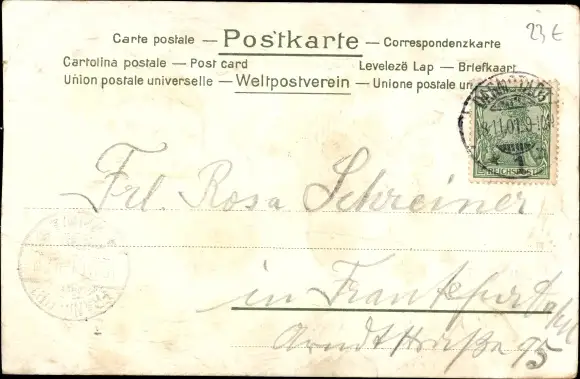 23 €
Carte postale — Postkarte — Correspondenzkarte
Cartolina postale — Post card Levelezë Lap — Briefkaart
Union postale universelle — Weltpostverein — Unione postale un
DARMSTADT
18.11.01.9-10V.
REICHSPOST
1
Frl. Rosa Schreiner
in Frankfurt
Arndtstraße 95